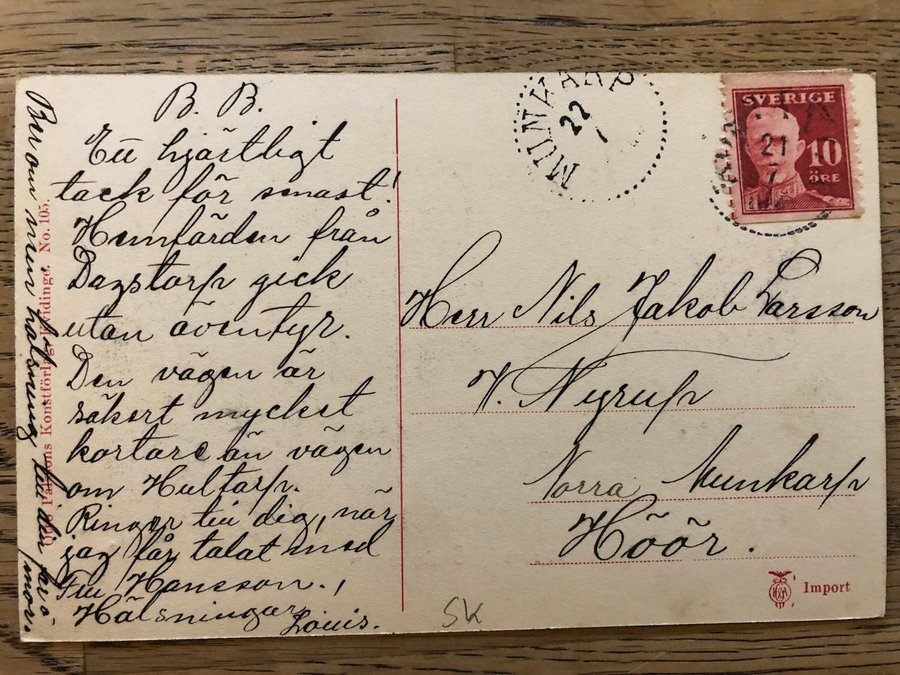 B. B.
Ett hjärtligt
tack för senast!
Hemfärden från
Dagstorp gick
utan äventyr.
Den vägen är
säkert mycket
kortare än vägen
om Hultarp.
Ringer till dig, när
jag får talat med
Fru Hansson.,
Hälsningar
Louis.
Ber om min hälsning till din far o.
mor.
Konstförlag No. 105.
MUNKARP
22
1
SVERIGE
10
ÖRE
21
7
Herr Nils Jakob Larsson
V. Nyrup
Norra Munkarp
Höör.
Import
SK